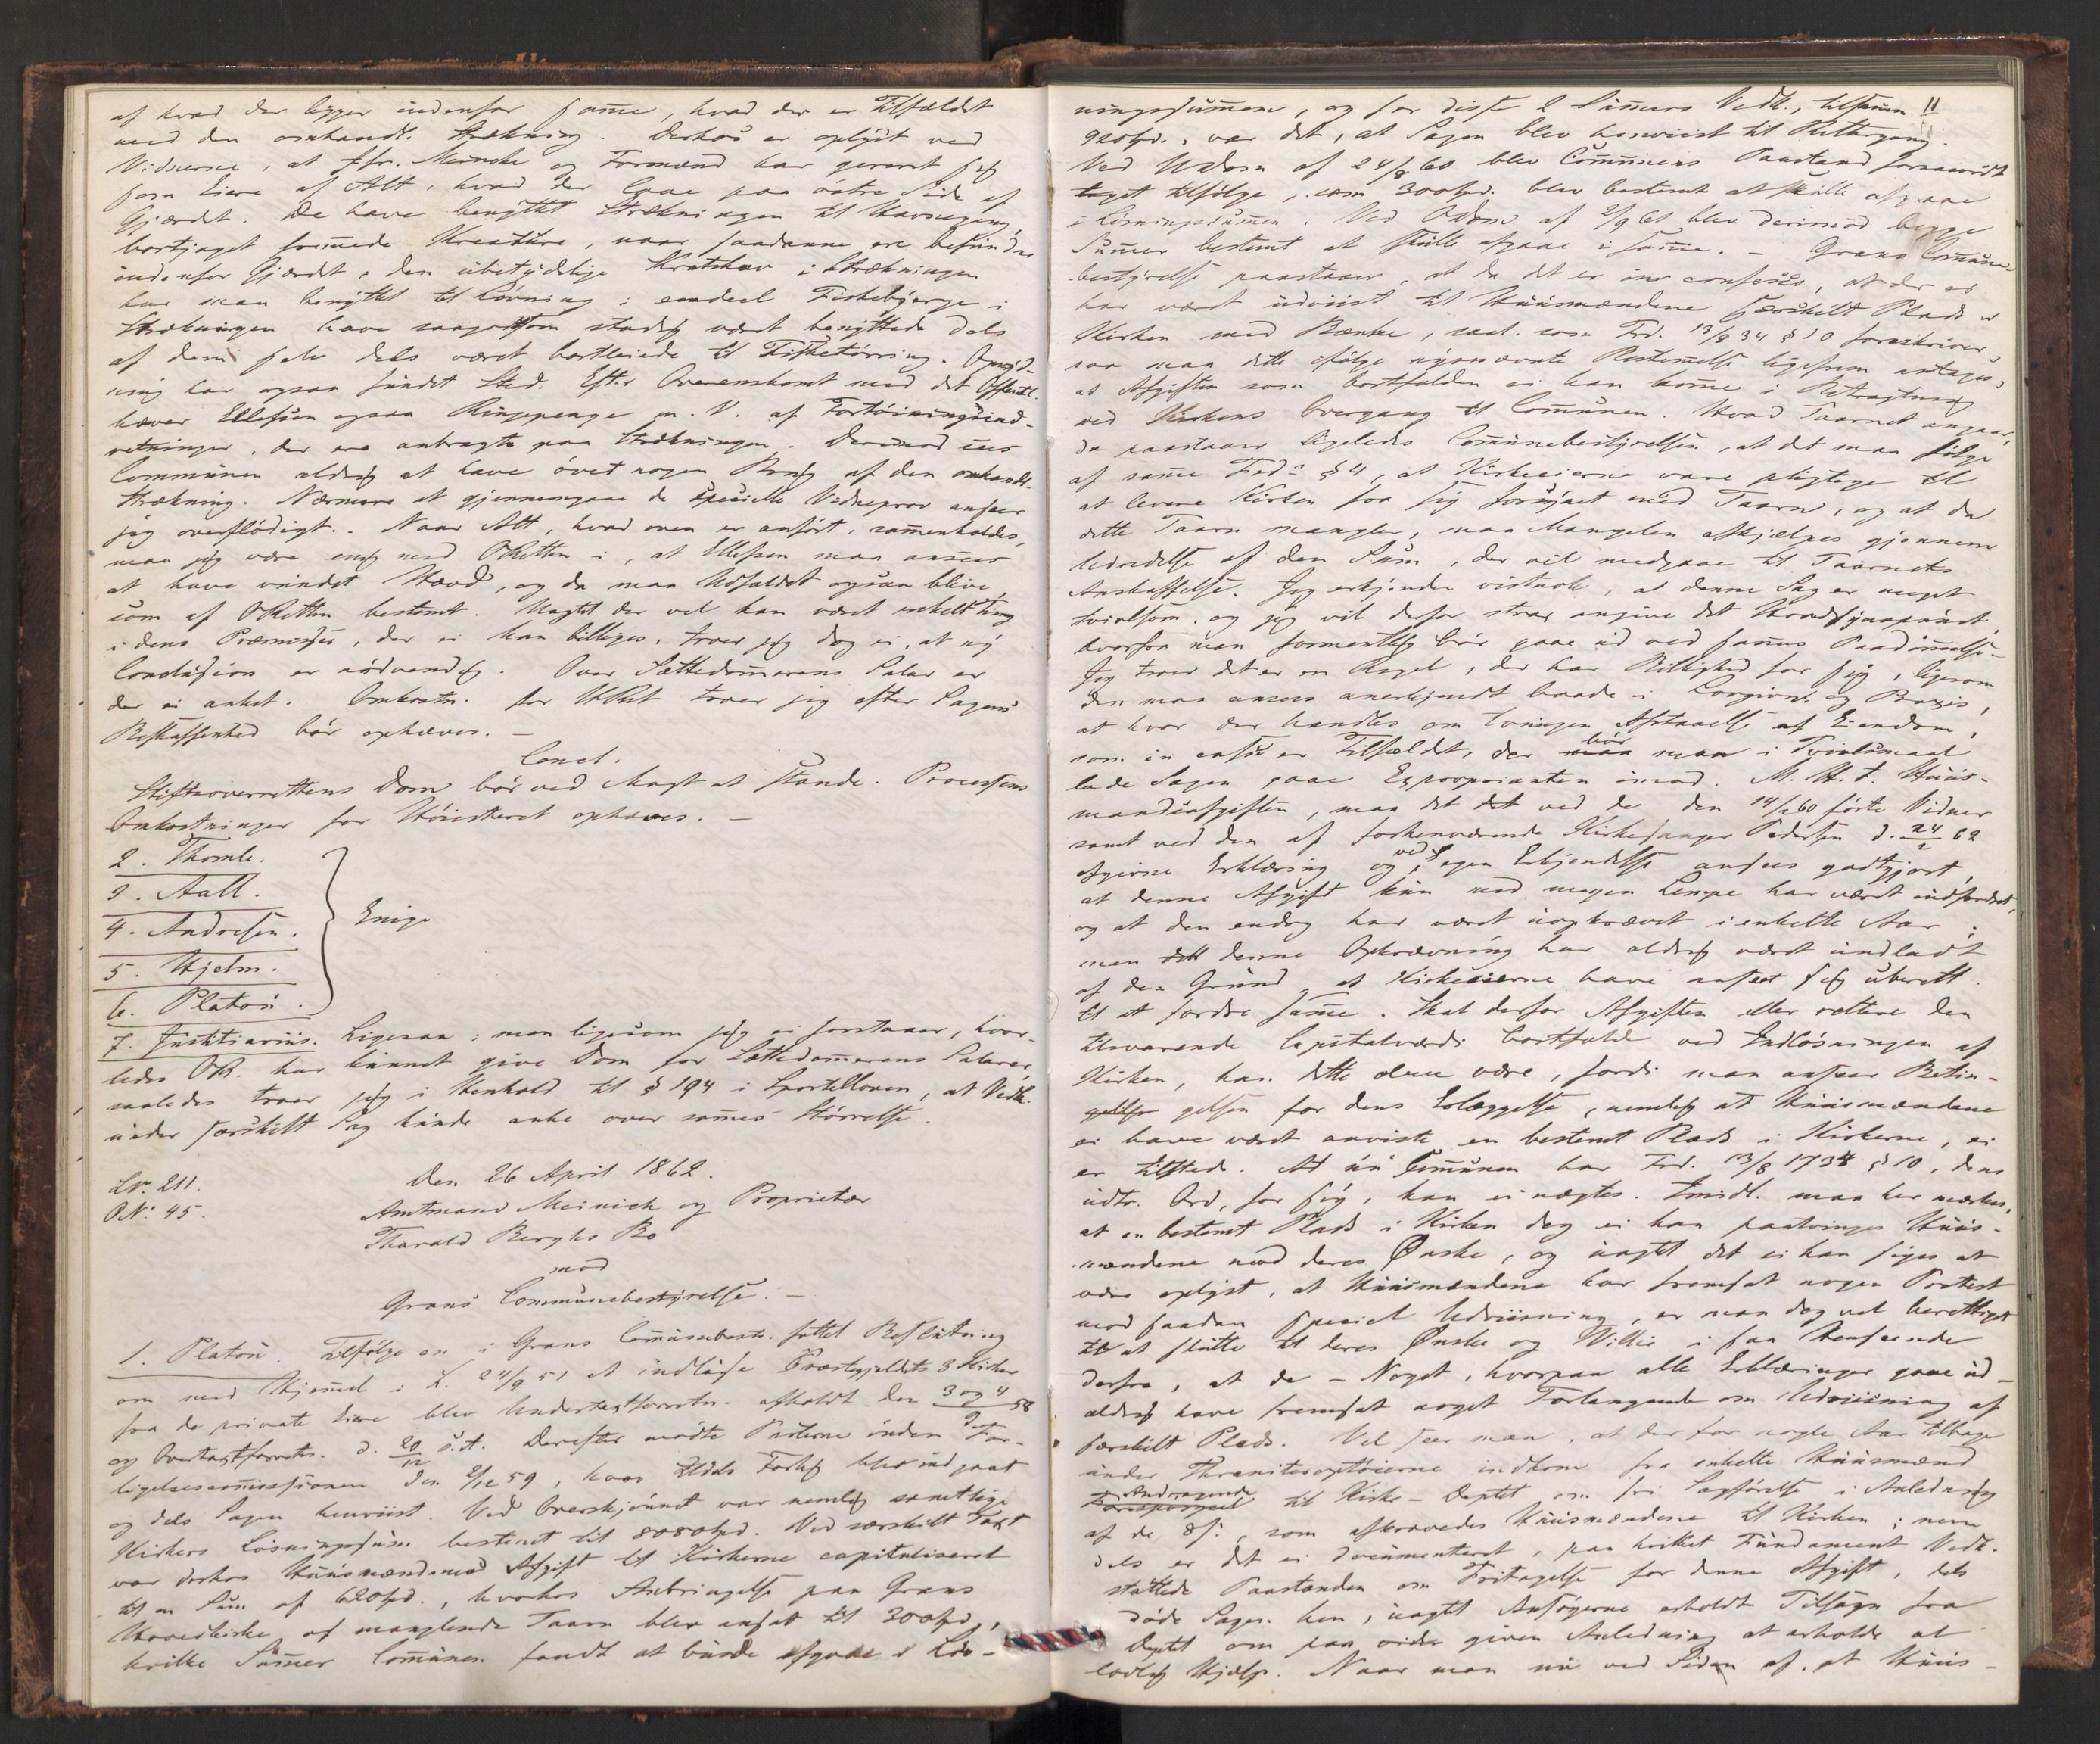 af hvad der ligger indenfor samme, hvad der er Tilfældet
med den omhandl. Strækning. Derhos er oplyst ved
Vidnerne, at Mfr. Meincke og Formænd har gereret sig
som Eiere af Alt, hvad der laae paa østre Side af
Gjærdet. De have benyttet Strækningen til Havnegang,
bortjaget fremmede Kreature, naar saadanne ere befundne
indenfor Gjærdet, den ubetydelige Kratskov i Strækningen
har man benyttet til Løvning; endeel Fiskebjerge i
Strækningen have saagodtsom stadig været benyttede dels
af dem selv dels været bortleiede til Fisketørring. Opryd-
ning har ogsaa fundet Sted. Efter Overenskomst med det Offentl.
hæver Ellefsen ogsaa Ringpenge m. V. af Fortøiningsind-
retninger, der ere anbragte paa Strækningen. Derimod sees
Communen aldrig at have øvet nogen Brug af den omhandl.
Strækning. Nærmere at gjennemgaae de specielle Vidneprov anseer
jeg overflødigt. Naar Alt, hvad oven er anført, sammenholdes,
maa jeg være enig med ORetten i, at Ellefsen maa ansees
at have vundet Hævd, og da maa Udfaldet ogsaa blive,
som af ORetten bestemt. Uagtet der vel kan være enkelt Ting
i dens Præmisser, der ei kan billiges, troer jeg dog ei, at ny
Conclusion er nødvendig. Over Sættedommerens Salar er
der ei anket. Omkostn. for HRet troer jeg efter Sagens
Beskaffenhed bør ophæves. –
Concl.
Stiftsoverrettens Dom bør ved Magt at stande. Processens
Omkostninger for Høiesteret ophæves. –
2. Thomle.
3. Aall.
4. Andresen.
5. Hjelm.
6. Platou.
Enige
7. Justitiarius. Ligesaa; men ligesom jeg ei forstaaer, hvor-
ledes OR. har kunnet give Dom for Sættedommerens Salarer,
saaledes troer jeg i Henhold til § 194 i Sportelloven, at Vedk.
under særskilt Sag kunde anke over sammes Størrelse.
LNº 211.
PNº 45.
Den 26 April 1862.
Amtmand Meinich og Proprietær
Tharald Berghs Bo
mod
Grans Communebestyrelse. –
1. Platou. Tilfølge en i Grans Communebest. fattet Beslutning
om med Hjemmel i L. 24/9 51 at indløse Præstegjeldets 3 Kirker
fra de private Eiere blev Undertaxtforretn. afholdt den 3 og 4/9 58
og Overtaxtforretn. d. 20/12 s. A. Derefter mødte Parterne inden For-
ligelsescommissionen den 2/12 59, hvor tildels Forlig blev indgaaet
og dels Sagen henviist. Ved Overskjønnet var nemlig samtlige
Kirkers Løsningssum bestemt til 8080 Spd. Ved særskilt Taxt
var derhos Huusmændenes Afgift til Kirkerne capitaliseret
til en Sum af 620 Spd., hvorhos Anbringelse paa Grans
Hovedkirke af manglende Taarn blev ansat til 300 Spd,
hvilke Summer Communen fandt at burde afgaae i Løs-
11
ningssummen, og for disse 2 Summers Vedk., tilsammen
920 Spd., var det, at Sagen blev henviist til Rettergang.
Ved UDom af 24/8 60 blev Communens Paastand forsaavidt
taget tilfølge, som 300 Spd. blev bestemt at skulle afgaae
i Løsningssummen. Ved ODom af 2/9 61 blev derimod begge
Summer bestemt at skulle afgaae i samme. – Grans Commune-
bestyrelse paastaaer, at da det er in confesso, at der ei
har været udviist til Huusmændene særskilt Plads i
Kirken med Bænke, saal. som Frd. 13/8 34 § 10 foreskriver,
saa maa dette ifølge nysnævnte Bestemmelse ligefrem antages,
at Afgiften som bortfalden ei kan komme i Betragtning
ved Kirkens Overgang til Communen. Hvad Taarnet angaaer,
da paastaaer ligeledes Communebestyrelsen, at det maa følge
af samme Frd.s § 4, at Kirkeeierne vare pligtige til
at levere Kirken fra sig forsynet med Taarn, og at da
dette Taarn mangler, maa Mangelen afhjælpes gjennem
Udredelse af den Sum, der vil medgaae til Taarnets
Anskaffelse. Jeg erkjender vistnok, at denne Sag er meget
tvivlsom, og jeg vil derfor strax angive det Hovedsynspunct,
hvorfra man formentlig bør gaae ud ved sammes Paadømmelse.
Jeg troer det er en Regel, der har Billighed for sig, ligesom
den maa ansees anerkjendt baade i Lovgivn. og Praxis,
at hvor der handles om tvungen Afstaaelse af Eiendom,
som in casu er Tilfældet, der bør man i Tvivlsmaal
lade Sagen gaae Expropriantten imod. M. H. t. Huus-
mandsafgiften, maa det ved de den 14/2 60 førte Vidner
samt ved den af forhenværende Kirkesanger Pedersen d. 24/2 62
afgivne Erklæring og ved egen Erkjendelse ansees godtgjort,
at denne Afgift kun med megen Lempe har været indfordret,
og at den endog har været uopkrævet i enkelte Aar;
men denne Opkrævning har aldrig været undladt
af den Grund, at Kirkeeierne have anseet sig uberett.
til at fordre samme. Skal derfor Afgiften eller rettere den
tilsvarende Capitalværdi bortfalde ved Indløsningen af
Kirken, kan dette alene være, fordi man anseer Betin-
gelsen for dens Erlæggelse, nemlig at Huusmændene
ei have været anviste en bestemt Plads i Kirkerne, ei
er tilstede. At nu Communen har Frd. 13/8 1734 § 10, dens
udtr. Ord, for sig, kan ei nægtes. Imidl. maa her mærkes,
at en bestemt Plads i Kirken dog ei kan paatvinges Huus-
mændene mod deres Ønske, og uagtet det ei kan siges at
være oplyst, at Huusmændene har fremsat nogen Protest
mod saadan speciel Udviisning, er man dog vel berettiget
til at slutte til deres Ønske og Villie i saa Henseende
derfra, at de – Noget, hvorpaa alle Erklæringer gaae ud –
aldrig have fremsat noget Forlangende om Udviisning af
særskilt Plads. Vel seer man, at der for nogle Aar tilbage
under Thraniteroptøierne indkom fra enkelte Huusmænd
Andragende til Kirke-Deptet om fri Sagførelse i Anledning
af de 8 s., som afkrævedes Huusmændene til Kirken; men
dels er det ei documenteret, paa hvilket Fundament Vedk.
støttede Paastanden om Fritagelse for denne Afgift, dels
døde Sagen hen, uagtet Ansøgerne erholdt Tilsagn fra
Deptet om paa videre given Anledning at erholde al
lovlig Hjælp. Naar man nu ved Siden af, at Huus-